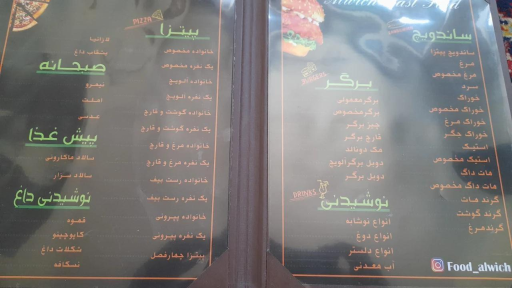 ساندویچ
ساندویچ پیتزا
مرغ
مرغ مخصوص
سرد
خوراک
خوراک مخصوص
خوراک مرغ
خوراک جگر
استیک
استیک مخصوص
هات داگ
هات داگ مخصوص
گرند هات
گرند گوشت
گرند مرغ
BURGERS
برگر
برگر معمولی
برگر مخصوص
چیز برگر
قارچ برگر
مک دونالد
دوبل برگر الویچ
دوبل برگر
DRINKS
نوشیدنی
انواع نوشابه
انواع دوغ
انواع دلستر
آب معدنی
Food_alwich
PIZZA
پیتزا
خانواده مخصوص
یک نفره مخصوص
خانواده الویچ
یک نفره الویچ
خانواده گوشت و قارچ
یک نفره گوشت و قارچ
خانواده مرغ و قارچ
یک نفره مرغ و قارچ
خانواده رست بیف
یک نفره رست بیف
خانواده پپرونی
یک نفره پپرونی
پیتزا چهارفصل
لازانیا
بشقاب داغ
صبحانه
نیمرو
املت
عدسی
پیش غذا
سالاد ماکارونی
سالاد سزار
نوشیدنی داغ
قهوه
کاپوچینو
شکلات داغ
نسکافه